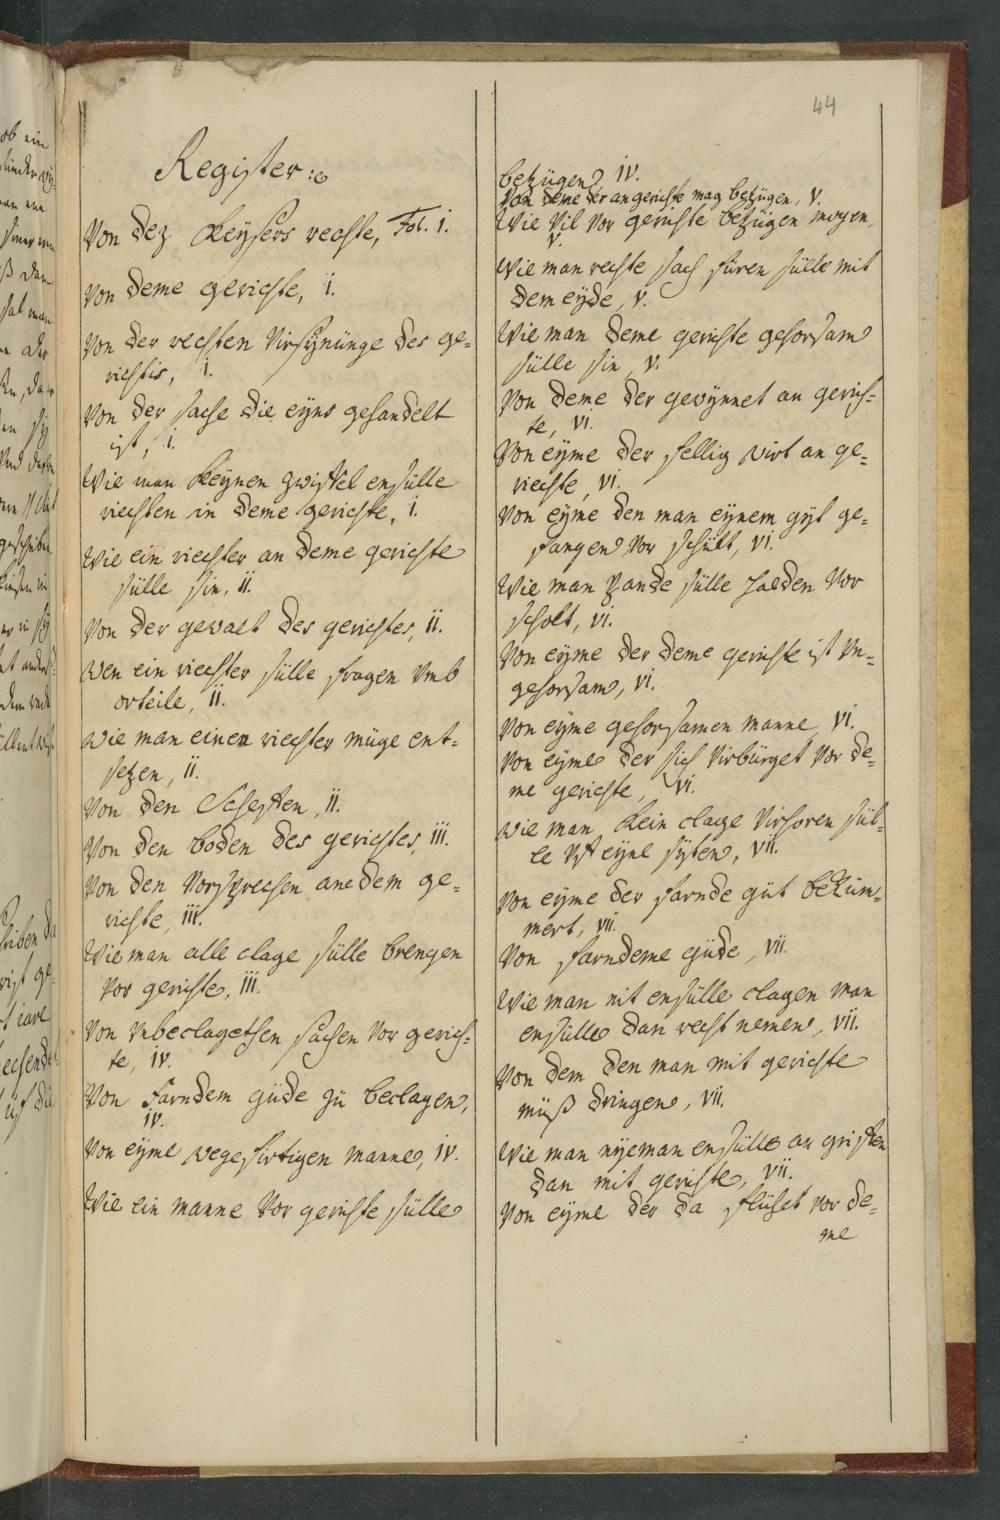 44
Register:
Von dez Keysers rechte, Fol. i.
Von deme gerichte, i.
Von der rechten Virsÿnünge des ge=
richtis, i.
Von der sache die eyns gehandelt
ist, i.
Wie man keÿnen zwistel ensülle
riechten in deme gerichte, i.
Wie ein riechter an deme gerichte
sülle sin, ii.
Von der gewalt des gerichtes, ii.
Wen ein riechter sülle fragen vmb
orteile, ii.
Wie man einen riechter müge ent=
setzen, ii.
Von den Scheffen, ii.
Von den boden des gerichtes, iii.
Von den Vorsprechen ane dem ge=
richte, iii.
Wie man alle clage sülle brengen
vor gerichte, iii.
Von vnbeclagethen sachen vor gerich=
te, iv.
Von Farndem güde zü beclagen,
iv.
Von eÿme wegefertigen manne, iv.
Wie ein manne vor gerichte sülle
betzügen, iv.
Von deme der an gerichte mag betzügen, v.
Wie vil vor gerichte betzügen mogen,
v.
Wie man rechte sach füren sülle mit
dem eÿde, v.
Wie man deme gerichte gehorsam
sülle sin, v.
Von deme der gewÿnnet an gerich=
te, vi.
Von eÿme der fellig wirt an ge=
riechte, vi.
Von eÿme den man eÿnem gyt ge=
fangen vor schült, vi.
Wie man pande sülle halden vor
scholt, vi.
Von eÿme der deme gerichte ist vn=
gehorsam, vi.
Von eÿme gehorsamen manne, vi.
Von eÿme der sich virbürget vor de=
me gerichte, vi.
Wie man kein clage virhoren sül=
le vff eÿne sÿten, vii.
Von eÿme der farnde güt beküm=
mert, vii.
Von farndeme güde, vii.
Wie man nit ensülle clagen man
ensülle dan recht nemen, vii.
Von dem den man mit gerichte
müß dringen, vii.
Wie man nÿeman ensülle an griffen
dan mit gerichte, vii.
Von eÿme der da flühet vor de=
me